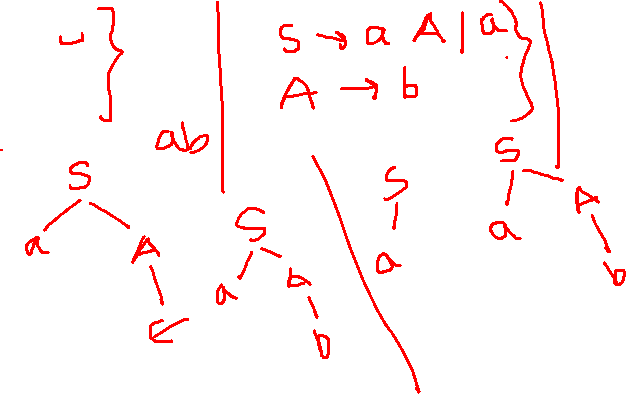 S → a A | a
A → b
ab
S
a A
ε
S
a A
b
S
a
S
a A
b